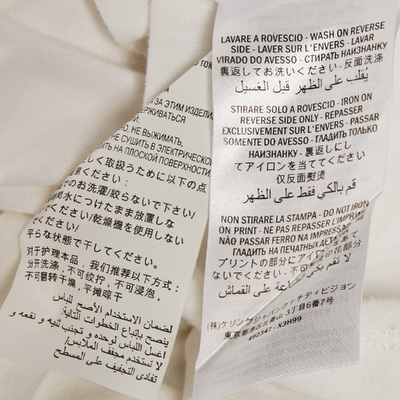 LAVARE A ROVESCIO - WASH ON REVERSE
SIDE - LAVER SUR L'ENVERS - LAVAR
VIRADO DO AVESSO - СТИРАТЬ НАИЗНАНКУ
裏返してお洗いください - 反面洗涤
يُقلب على الظهر قبل الغسيل
STIRARE SOLO A ROVESCIO - IRON ON
REVERSE SIDE ONLY - REPASSER
EXCLUSIVEMENT SUR L'ENVERS - PASSAR
SOMENTE DO AVESSO - ГЛАДИТЬ ТОЛЬКО
НАИЗНАНКУ - 裏返しにし
てアイロンを当ててください
仅反面熨烫
قم بالكي فقط على الظهر
NON STIRARE LA STAMPA - DO NOT IRON
ON PRINT - NE PAS REPASSER L'IMPRIMÉ
NÃO PASSAR FERRO NA IMPRESSÃO
ГЛАДИТЬ НА ПЕЧАТНЫХ
プリントの部分にアイロン
ないでください - 不可熨烫花部分
على القماش
(株)ケリングジャパン グッチディビジョン
東京都港区南青山3丁目6番7号
492347 - X3H99
ЗА ЭТИМ ИЗДЕЛИ
ДЕРЖИВАТЬСЯ
НО, НЕ ВЫЖИМАТЬ,
НЕ СУШИТЬ В ЭЛЕКТРИЧЕСКОЙ
НА ПЛОСКОЙ ПОВЕРХНОСТИ
しく取扱うために以下の点
ください:
のお洗濯/絞らないで下さい/
水につけたまま放置しな
ください/乾燥機を使用しない
平らな状態で干してください。
对于护理本品,我们推荐以下方式:
分开洗涤,不可绞拧,不可浸泡,
不可翻转干燥,平摊晾干
لضمان الاستخدام الأمثل للباس
ينصح بإتباع الخطوات التالية:
اغسل اللباس لوحده و تجنب ثنيه و نقعه و
لا تستخدم مجفف الملابس/
تفادى التجفيف على المسطح